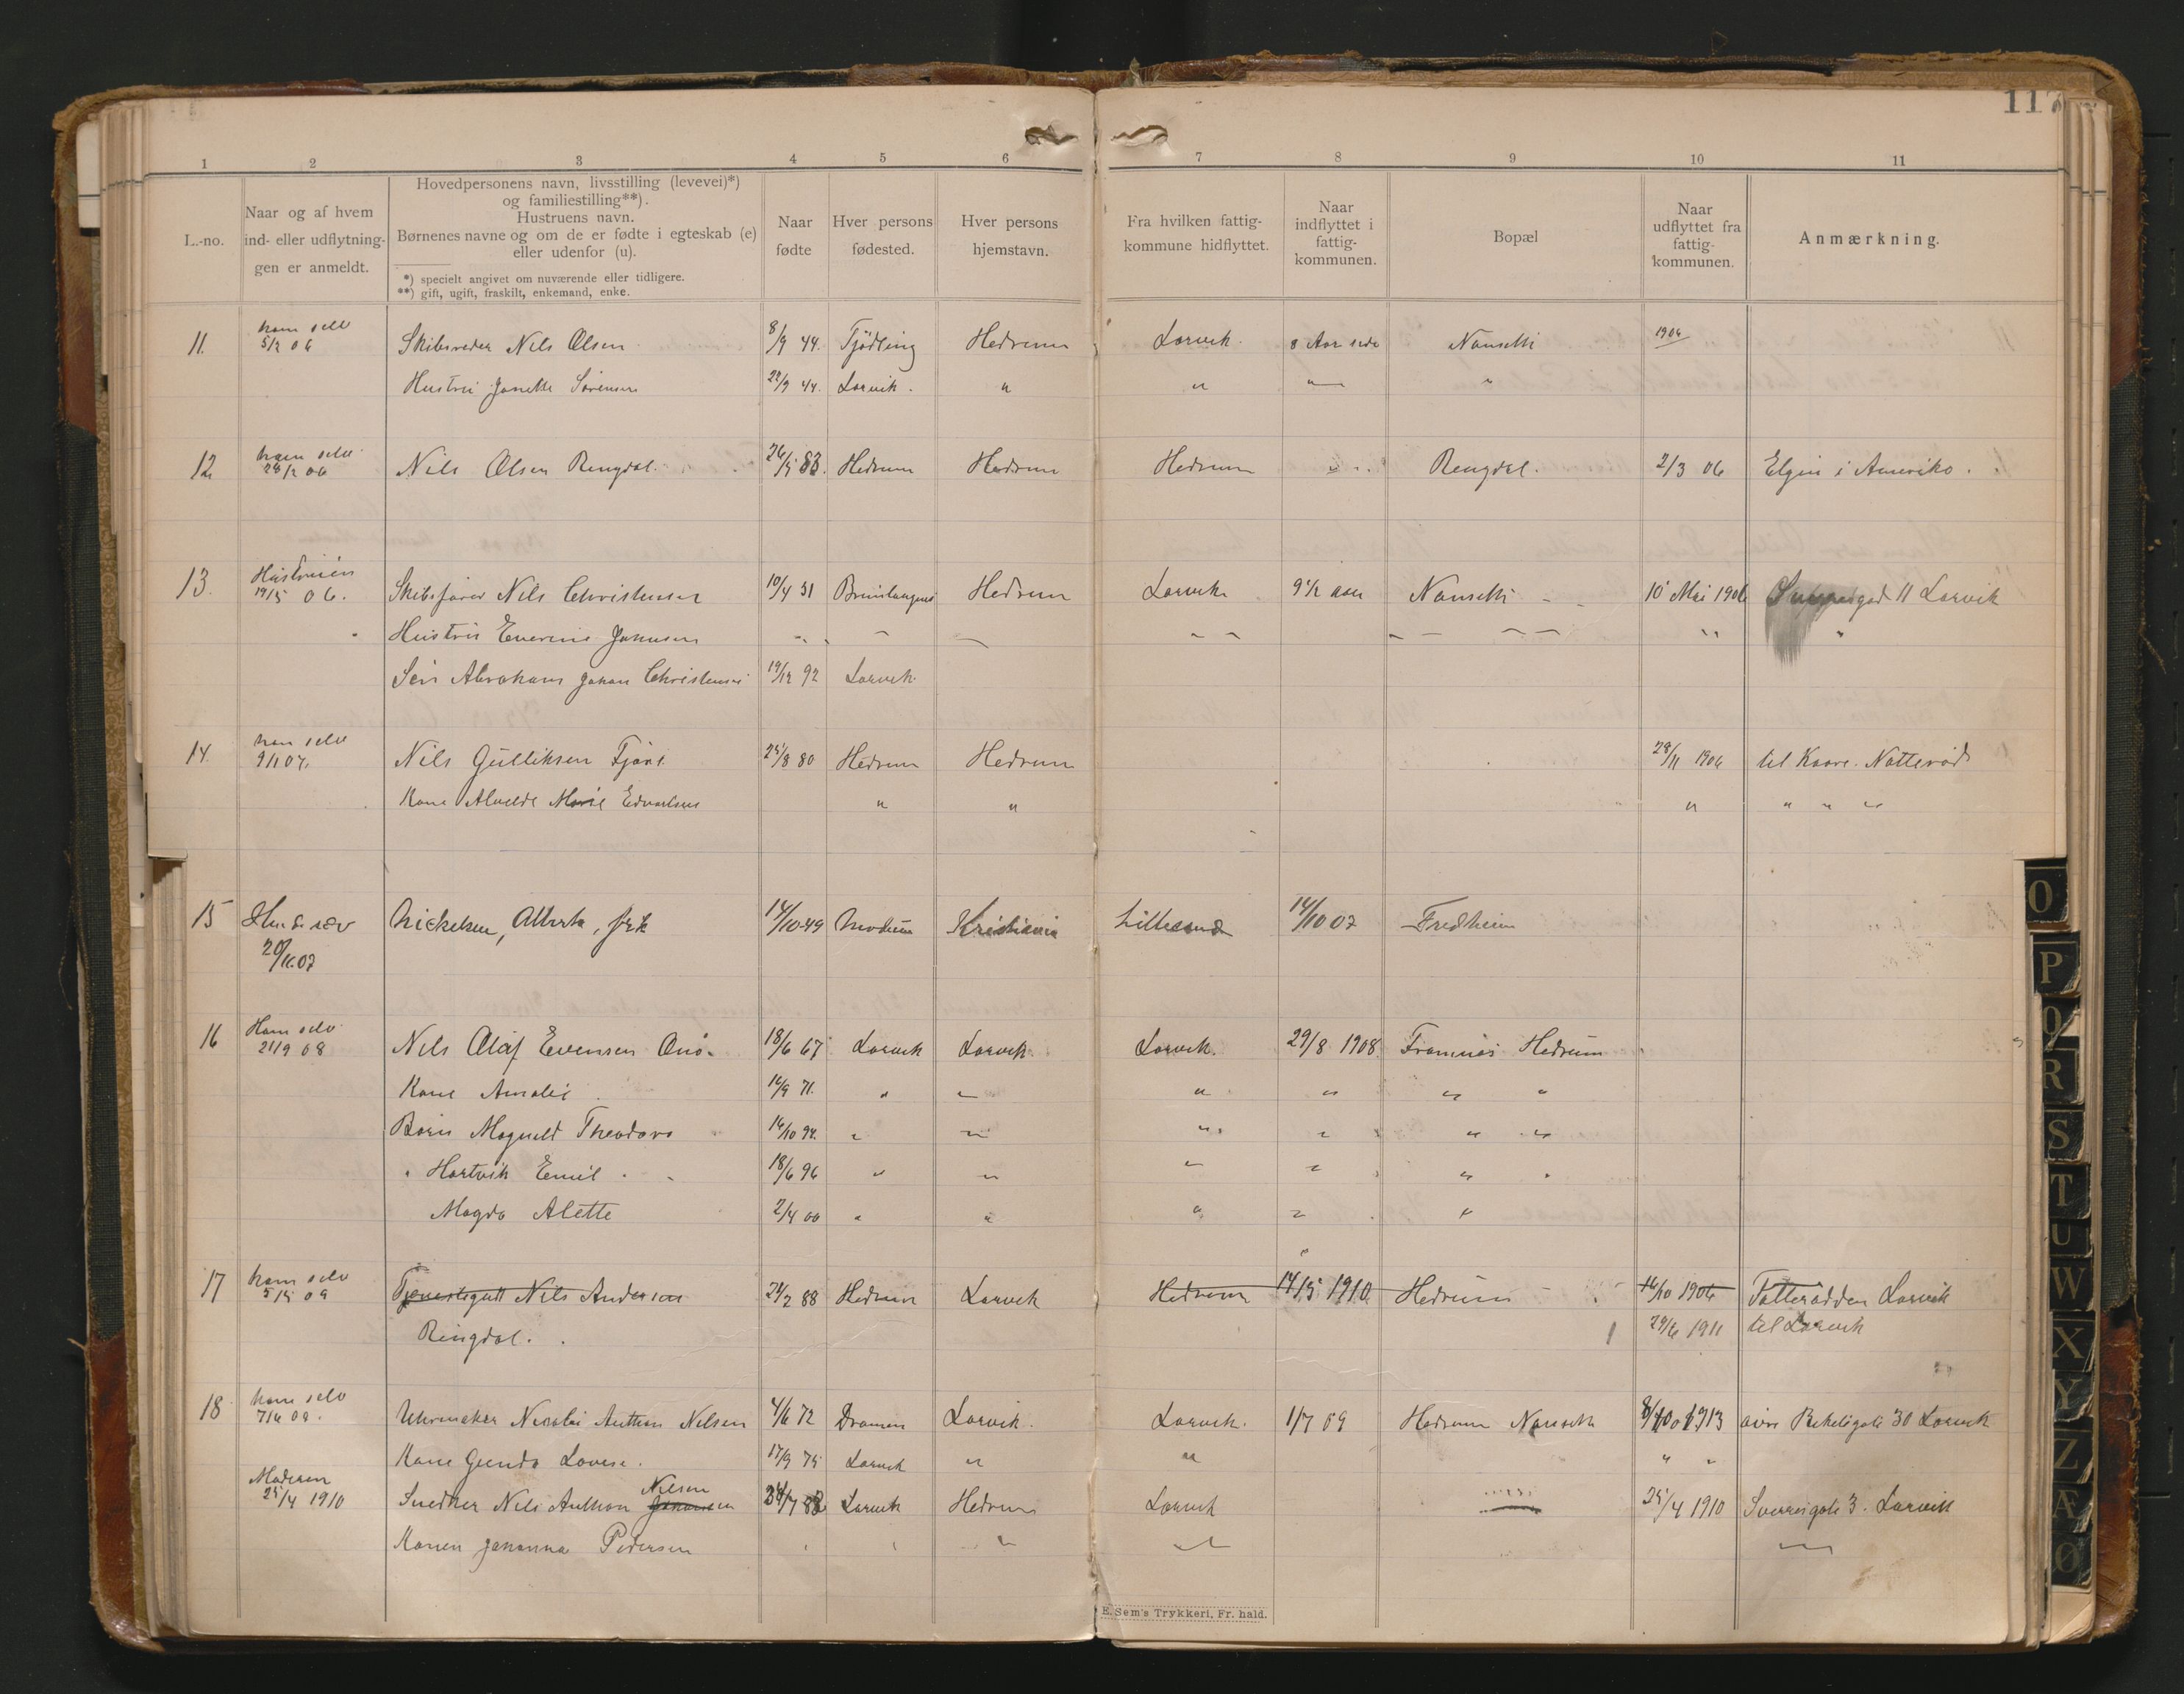 117
1 2 3 4 5 6 7 8 9 10 11
L.-no.
Naar og af hvem
ind- eller udflytnin-
gen er anmeldt.
Hovedpersonens navn, livsstilling (levevei)*)
og familiestilling**).
Hustruens navn.
Børnenes navne og om de er fødte i egteskab (e)
eller udenfor (u).
*) specielt angivet om nuværende eller tidligere.
**) gift, ugift, fraskilt, enkemand, enke.
Naar
fødte
Hver persons
fødested.
Hver persons
hjemstavn.
Fra hvilken fattig-
kommune hidflyttet.
Naar
indflyttet i
fattig-
kommunen.
Bopæl
Naar
udflyttet fra
fattig-
kommunen.
Anmærkning.
11. ham selv 5/2 06 Skibsreder Nils Olsen 8/9 44. Tjødling Hedrum Larvik. 8 Aar siden Nansetti 1906
Hustru Janette Sørensen 22/9 44. Larvik. " " " "
12 ham selv 28/2 06 Nils Olsen Ringdal. 26/5 83. Hedrum Hedrum Hedrum Ringdal. 2/3 06 Elgin i Amerika.
13. Hustruen 19/5 06. Skibsfører Nils Christensen 10/4 51 Brunlanges Hedrum Larvik 9 1/2 aar Nansetti 10 Mai 1906 11 Larvik
Hustru Everine Johnsen
Søn Abraham Johan Christensen 19/12 92 Larvik
14. han selv 9/1 07. Nils Gulliksen Fjære 25/8 80 Hedrum Hedrum 28/11 1906 til Kaare Natterød
Kone Alvilde Marie Edvardsen " " " " " "
15 20/11.07 Nickelsen, Alberta, frk 14/10-49 Modum Kristiania Lillesand 14/10 07 Fredheim
16 Ham selv 21/9 08 Nils Olaf Evensen Onø. 18/6 67 Larvik Larvik. Larvik. 29/8 1908 Framnæs Hedrum
Kone Amalie 16/9 71. " " " " " "
Barn Magnild Theodora 16/10 94. " " " " " "
" Hartvik Emil 18/6 96 " " " " " "
Magda Alette 2/4 00 " " " " "
17 ham selv 5/5 09 Tjenestegutt Nils Andersen 24/2 88 Hedrum Larvik Hedrum 14/5 1910 Hedrum 16/10 1906 Fatterødden Larvik
Ringdal. 29/6 1911 til Larvik
18 ham selv 7/6 09. Uhrmaker Nicolai Anthon Nilsen 4/6 72 Dramen Larvik. Larvik. 1/7 09 Hedrum Nansetti 1913 øvre Bøkeligate 30 Larvik
Kone Gunda Lovise. 17/9 75 Larvik " " " "
Moderen 25/4 1910 Snedker Nils Anthon Johansen Nilsen 24/7 82 Larvik Hedrum Larvik 25/4 1910 Sverresgate 3. Larvik
Konen Johanna Pedersen " "
E. Sem's Trykkeri, Fr. hald.
O
P
Q
R
S
T
U
W
X
Y
Z
Æ
Ø